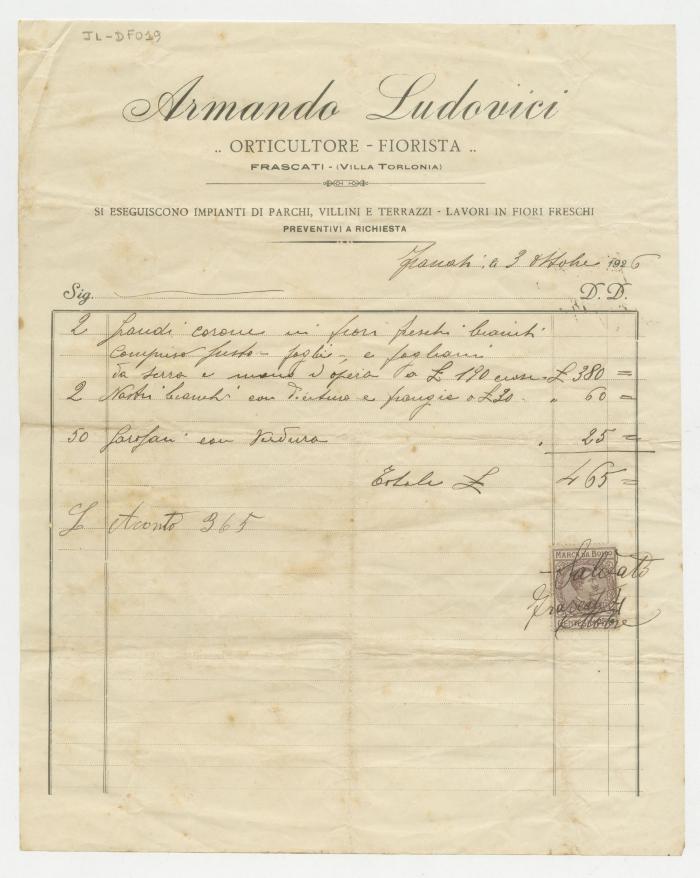 JL-DF019
Armando Ludovici
.. ORTICULTORE - FIORISTA ..
FRASCATI - (VILLA TORLONIA)
SI ESEGUISCONO IMPIANTI DI PARCHI, VILLINI E TERRAZZI - LAVORI IN FIORI FRESCHI
PREVENTIVI A RICHIESTA
Frascati, a 3 Ottobre 1926
Sig. D. D.
2 Grandi corone in fiori freschi bianchi
Compreso fusto - foglie, e fogliami
da serra e mano d'opera a £ 190 £ 380 =
2 Nastri bianchi con e frangia a £ 30 - " 60 =
50 Garofani con Verdura " 25 =
Totale £ 465 =
£ Aconto 365
MARCA DA BOLLO
Saldato
Frascati 4
Ottobre